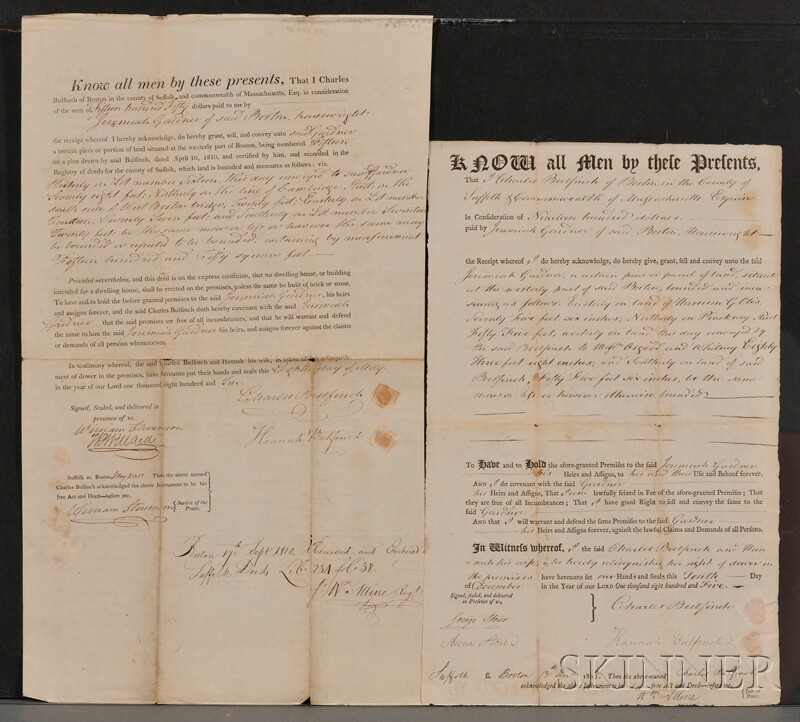 Know all men by these presents, That I Charles
Bulfinch of Boston in the county of Suffolk, and commonwealth of Massachusetts, Esq. in consideration
of the sum of Fifteen hundred Fifty dollars paid to me by
Jeremiah Gardner of said Boston, housewright,
the receipt whereof I hereby acknowledge, do hereby grant, sell, and convey unto said Gardner
a certain piece or portion of land situated at the westerly part of Boston, being numbered Fifteen
on a plan drawn by said Bulfinch, dated April 10, 1810, and certified by him, and recorded in the
Registry of deeds for the county of Suffolk, which land is bounded and measures as follows: viz.
Westerly on Lot number Sixteen this day conveyed to said Gardner
Seventy eight feet; Northerly on the line of Cambridge Street, on the
south side of West Boston bridge, Twenty feet; Easterly on Lot number
Fourteen, Seventy Seven feet; and Southerly on Lot number Seventeen
Twenty feet be the same more or less or however the same may
be bounded or reputed to be bounded, containing by measurement
Fifteen hundred and Fifty square feet.
Provided nevertheless, and this deed is on the express condition, that no dwelling house, or building
intended for a dwelling house, shall be erected on the premises, unless the same be built of brick or stone.
To have and to hold the before granted premises to the said Jeremiah Gardner, his heirs
and assigns forever, and the said Charles Bulfinch doth hereby covenant with the said Jeremiah
Gardner that the said premises are free of all incumbrances, and that he will warrant and defend
the same to him the said Jeremiah Gardner his heirs, and assigns forever against the claims
or demands of all persons whomsoever.
In testimony whereof, the said Charles Bulfinch and Hannah his wife, in token of her relinquish-
ment of dower in the premises, have hereunto put their hands and seals this Eighth day of May
in the year of our Lord one thousand eight hundred and Ten
Charles Bulfinch
Signed, Sealed, and delivered in
presence of us.
William Stevenson
Hannah Bulfinch
Suffolk ss. Boston, May 1810. Then the above named
Charles Bulfinch acknowledged the above Instrument to be his
free Act and Deed—before me,
William Stevenson Justice of the
Peace.
Boston 17th Sept 1810, Received and Entered
Suffolk Deeds Lib. 234 fol. 38.
pr Wm Alline Regr
KNOW all Men by these Presents,
That I Charles Bulfinch of Boston in the County of
Suffolk & Commonwealth of Massachusetts Esquire
in Consideration of Nineteen hundred dollars
paid by Jeremiah Gardner of said Boston, Housewright
the receipt whereof I do hereby acknowledge, do hereby give, grant, sell and convey unto the said
Jeremiah Gardner, a certain piece or parcel of land, situate
at the westerly part of said Boston, bounded and mea-
suring as follows. Easterly on land of Harrison G Otis,
Seventy Five feet six inches; Northerly on Pinckney Street
Fifty Five feet, westerly on land this day conveyed by
the said Bulfinch to Messrs Osgood and Whitney Eighty
Three feet eight inches; and Southerly on land of said
Bulfinch, Fifty Five feet six inches, be the same
more or less or however otherwise bounded
To Have and to Hold the afore-granted Premises to the said Jeremiah Gardner
his Heirs and Assigns, to his and their Use and Behoof forever.
AND I do covenant with the said Gardner
his Heirs and Assigns, That I am lawfully seized in Fee of the afore-granted Premises; That
they are free of all Incumbrances; That I have good Right to sell and convey the same to the
said Gardner
And that I will warrant and defend the same Premises to the said Gardner
his Heirs and Assigns forever, against the lawful Claims and Demands of all Persons.
In Witness whereof, I the said Charles Bulfinch and Han-
nah his wife, who hereby relinquishes her right of dower in
the premises have hereunto set our Hands and Seals this Tenth Day
of December in the Year of our LORD One thousand eight hundred and Five.
Signed, sealed, and delivered
in Presence of us,
Charles Bulfinch
George Storer
Anna Storer
Hannah Bulfinch
Suffolk ss. Boston 13th Dec 1805. Then the above-named Charles Bulfinch
acknowledged the above Instrument to be his free Act and Deed—before me,
Wm Alline Just. of
Peace.
SKINNER